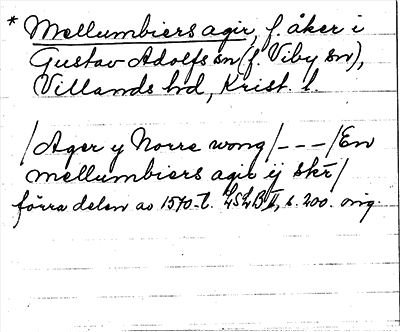 * Mellumbiers agir, f. åker i
Gustav Adolfs sn (f. Viby sn),
Villands hd, Krist. l.
/Ager y Norre wong/ --- /En
mellumbiers agir ij skr/
förra delen av 1570-t. LSLB II, s. 200. orig.